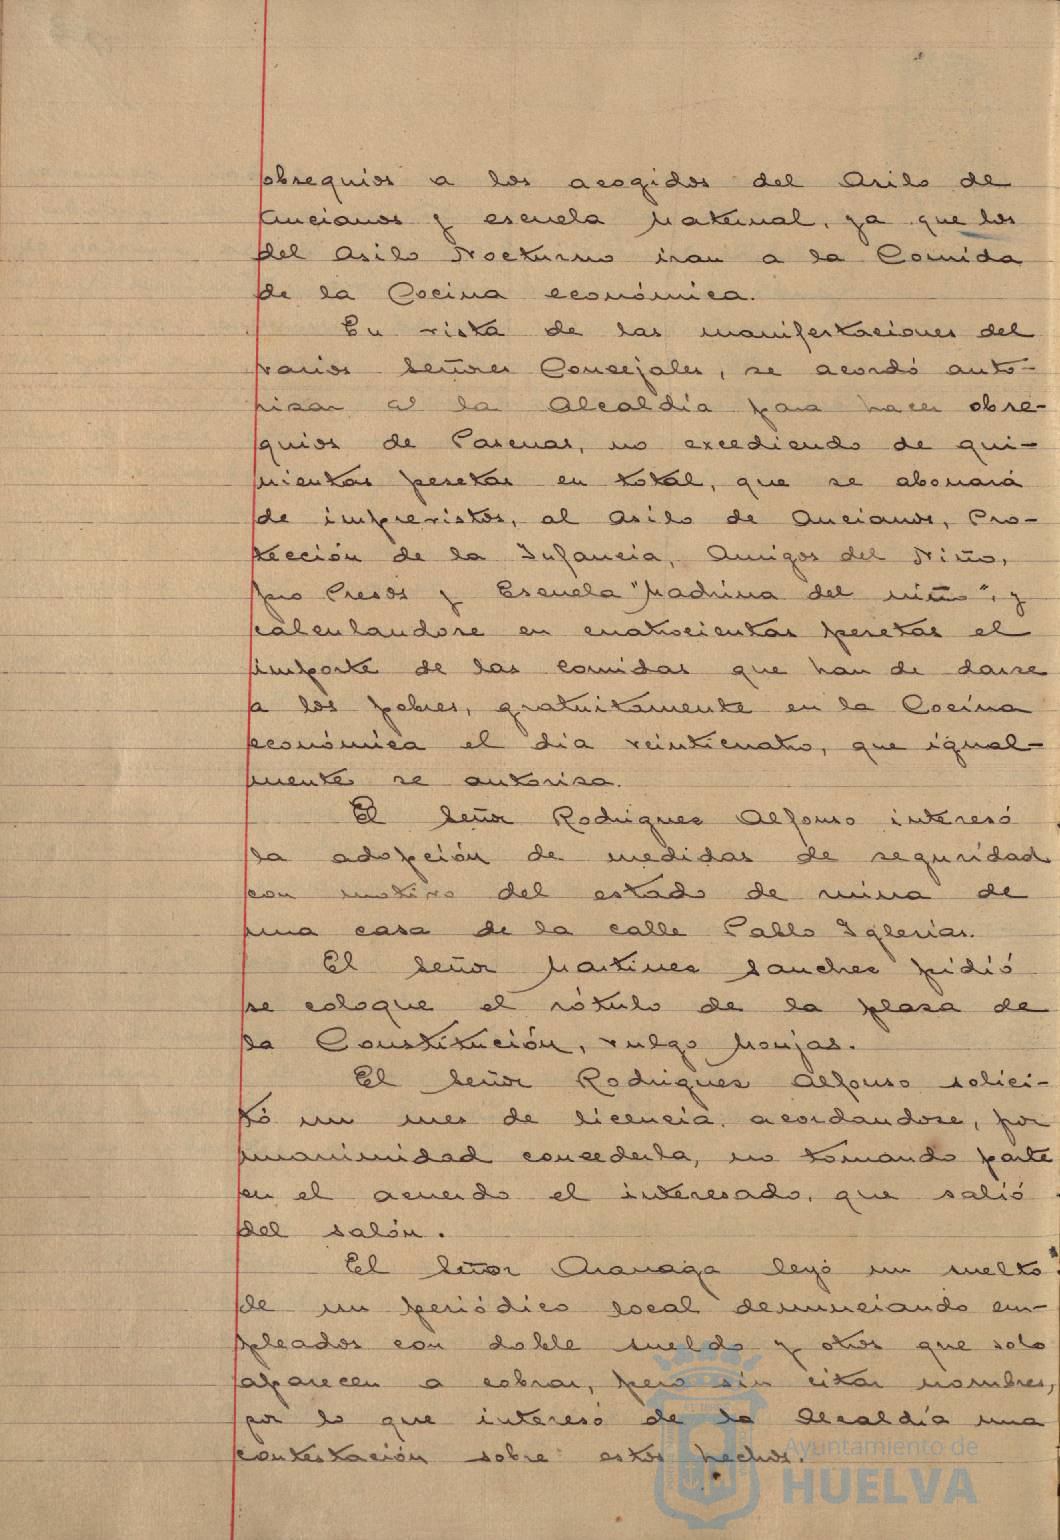 obsequios a los acogidos del Asilo de
Ancianos y escuela Maternal, ya que los
del Asilo Nocturno iran a la Comida
de la Cocina económica.
En vista de las manifestaciones del
varios Señores Concejales, se acordó auto-
rizar al la Alcaldía para hacer obse-
quios de Pascuas, no excediendo de qui-
nientas pesetas en total, que se abonará
de imprevistos, al Asilo de Ancianos, Pro-
tección de la Infancia, Amigos del Niño,
pro Presos y Escuela "Madrina del niño", y
calculandose en cuatrocientas pesetas el
importe de las comidas que han de darse
a los pobres, gratuitamente en la Cocina
económica el dia veinticuatro, que igual-
mente se autoriza.
El Señor Rodriguez Alfonso interesó
la adopción de medidas de seguridad
con motivo del estado de ruina de
una casa de la calle Pablo Iglesias.
El Señor Martinez Sanchez pidió
se coloque el rótulo de la plaza de
la Constitución, vulgo Monjas.
El Señor Rodriguez Alfonso solici-
tó un mes de licencia acordandose, por
unanimidad concederla, no tomando parte
en el acuerdo el interesado, que salió
del salón.
El Señor Aranaga leyó un suelto
de un periódico local denunciando em-
pleados con doble sueldo y otros que solo
aparecen a cobrar, pero sin citar nombres,
por lo que interesó de la Alcaldía una
contestación sobre estos hechos.
Ayuntamiento de
HUELVA